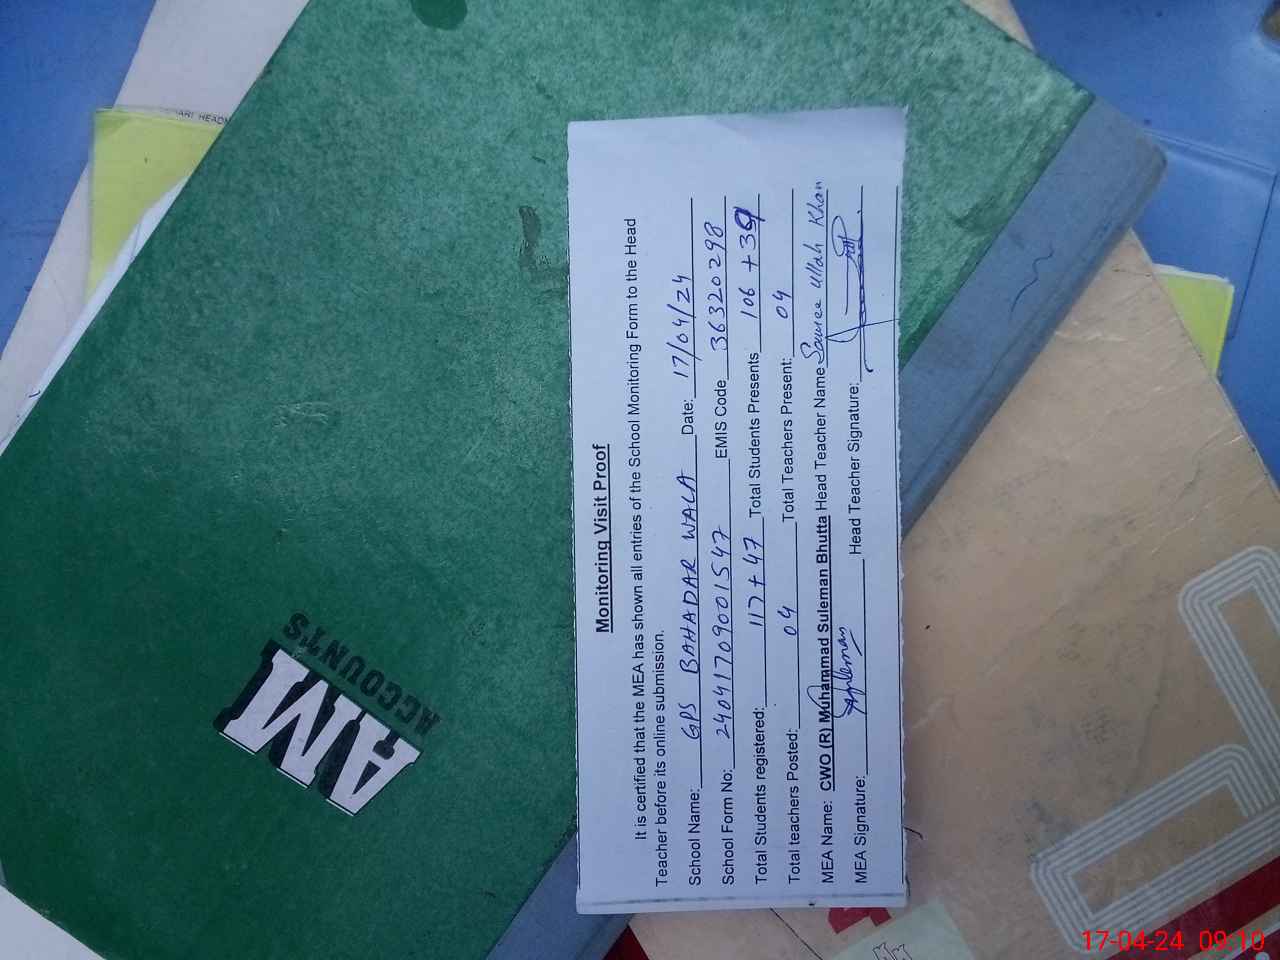 Monitoring Visit Proof
It is certified that the MEA has shown all entries of the School Monitoring Form to the Head
Teacher before its online submission.
School Name: GPS BAHADAR WALA Date: 17/04/24
School Form No: 24041709001547 EMIS Code 36320298
Total Students registered: 117 + 47 Total Students Presents 106 + 39
Total teachers Posted: 04 Total Teachers Present: 04
MEA Name: CWO (R) Muhammad Suleman Bhutta Head Teacher Name Ullah Khan
MEA Signature: Head Teacher Signature:
AMI
ACCOUNTS
17-04-24 09:10